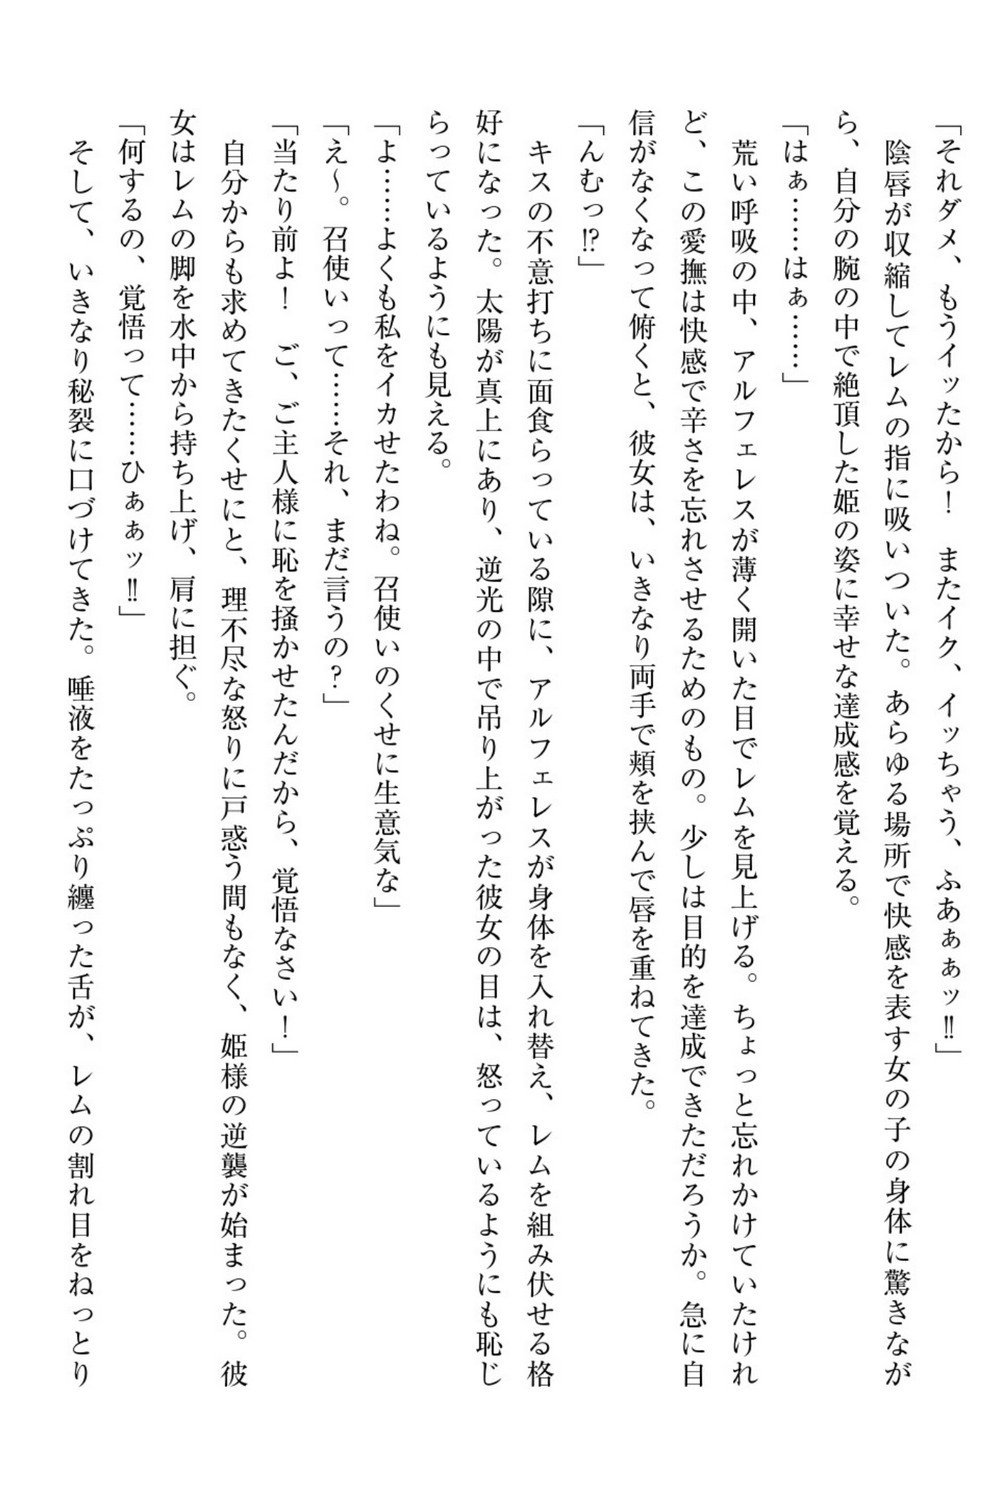 「それダメ、もうイッたから！　またイク、イッちゃう、ふあぁぁッ‼」
　陰唇が収縮してレムの指に吸いついた。あらゆる場所で快感を表す女の子の身体に驚きなが
ら、自分の腕の中で絶頂した姫の姿に幸せな達成感を覚える。
「はぁ……はぁ……」
　荒い呼吸の中、アルフェレスが薄く開いた目でレムを見上げる。ちょっと忘れかけていたけれ
ど、この愛撫は快感で辛さを忘れさせるためのもの。少しは目的を達成できただろうか。急に自
信がなくなって俯くと、彼女は、いきなり両手で頬を挟んで唇を重ねてきた。
「んむっ⁉」
　キスの不意打ちに面食らっている隙に、アルフェレスが身体を入れ替え、レムを組み伏せる格
好になった。太陽が真上にあり、逆光の中で吊り上がった彼女の目は、怒っているようにも恥じ
らっているようにも見える。
「よ……よくも私をイカせたわね。召使いのくせに生意気な」
「え〜。召使いって……それ、まだ言うの？」
「当たり前よ！　ご、ご主人様に恥を掻かせたんだから、覚悟なさい！」
　自分からも求めてきたくせにと、理不尽な怒りに戸惑う間もなく、姫様の逆襲が始まった。彼
女はレムの脚を水中から持ち上げ、肩に担ぐ。
「何するの、覚悟って……ひぁぁッ‼」
　そして、いきなり秘裂に口づけてきた。唾液をたっぷり纏った舌が、レムの割れ目をねっとり